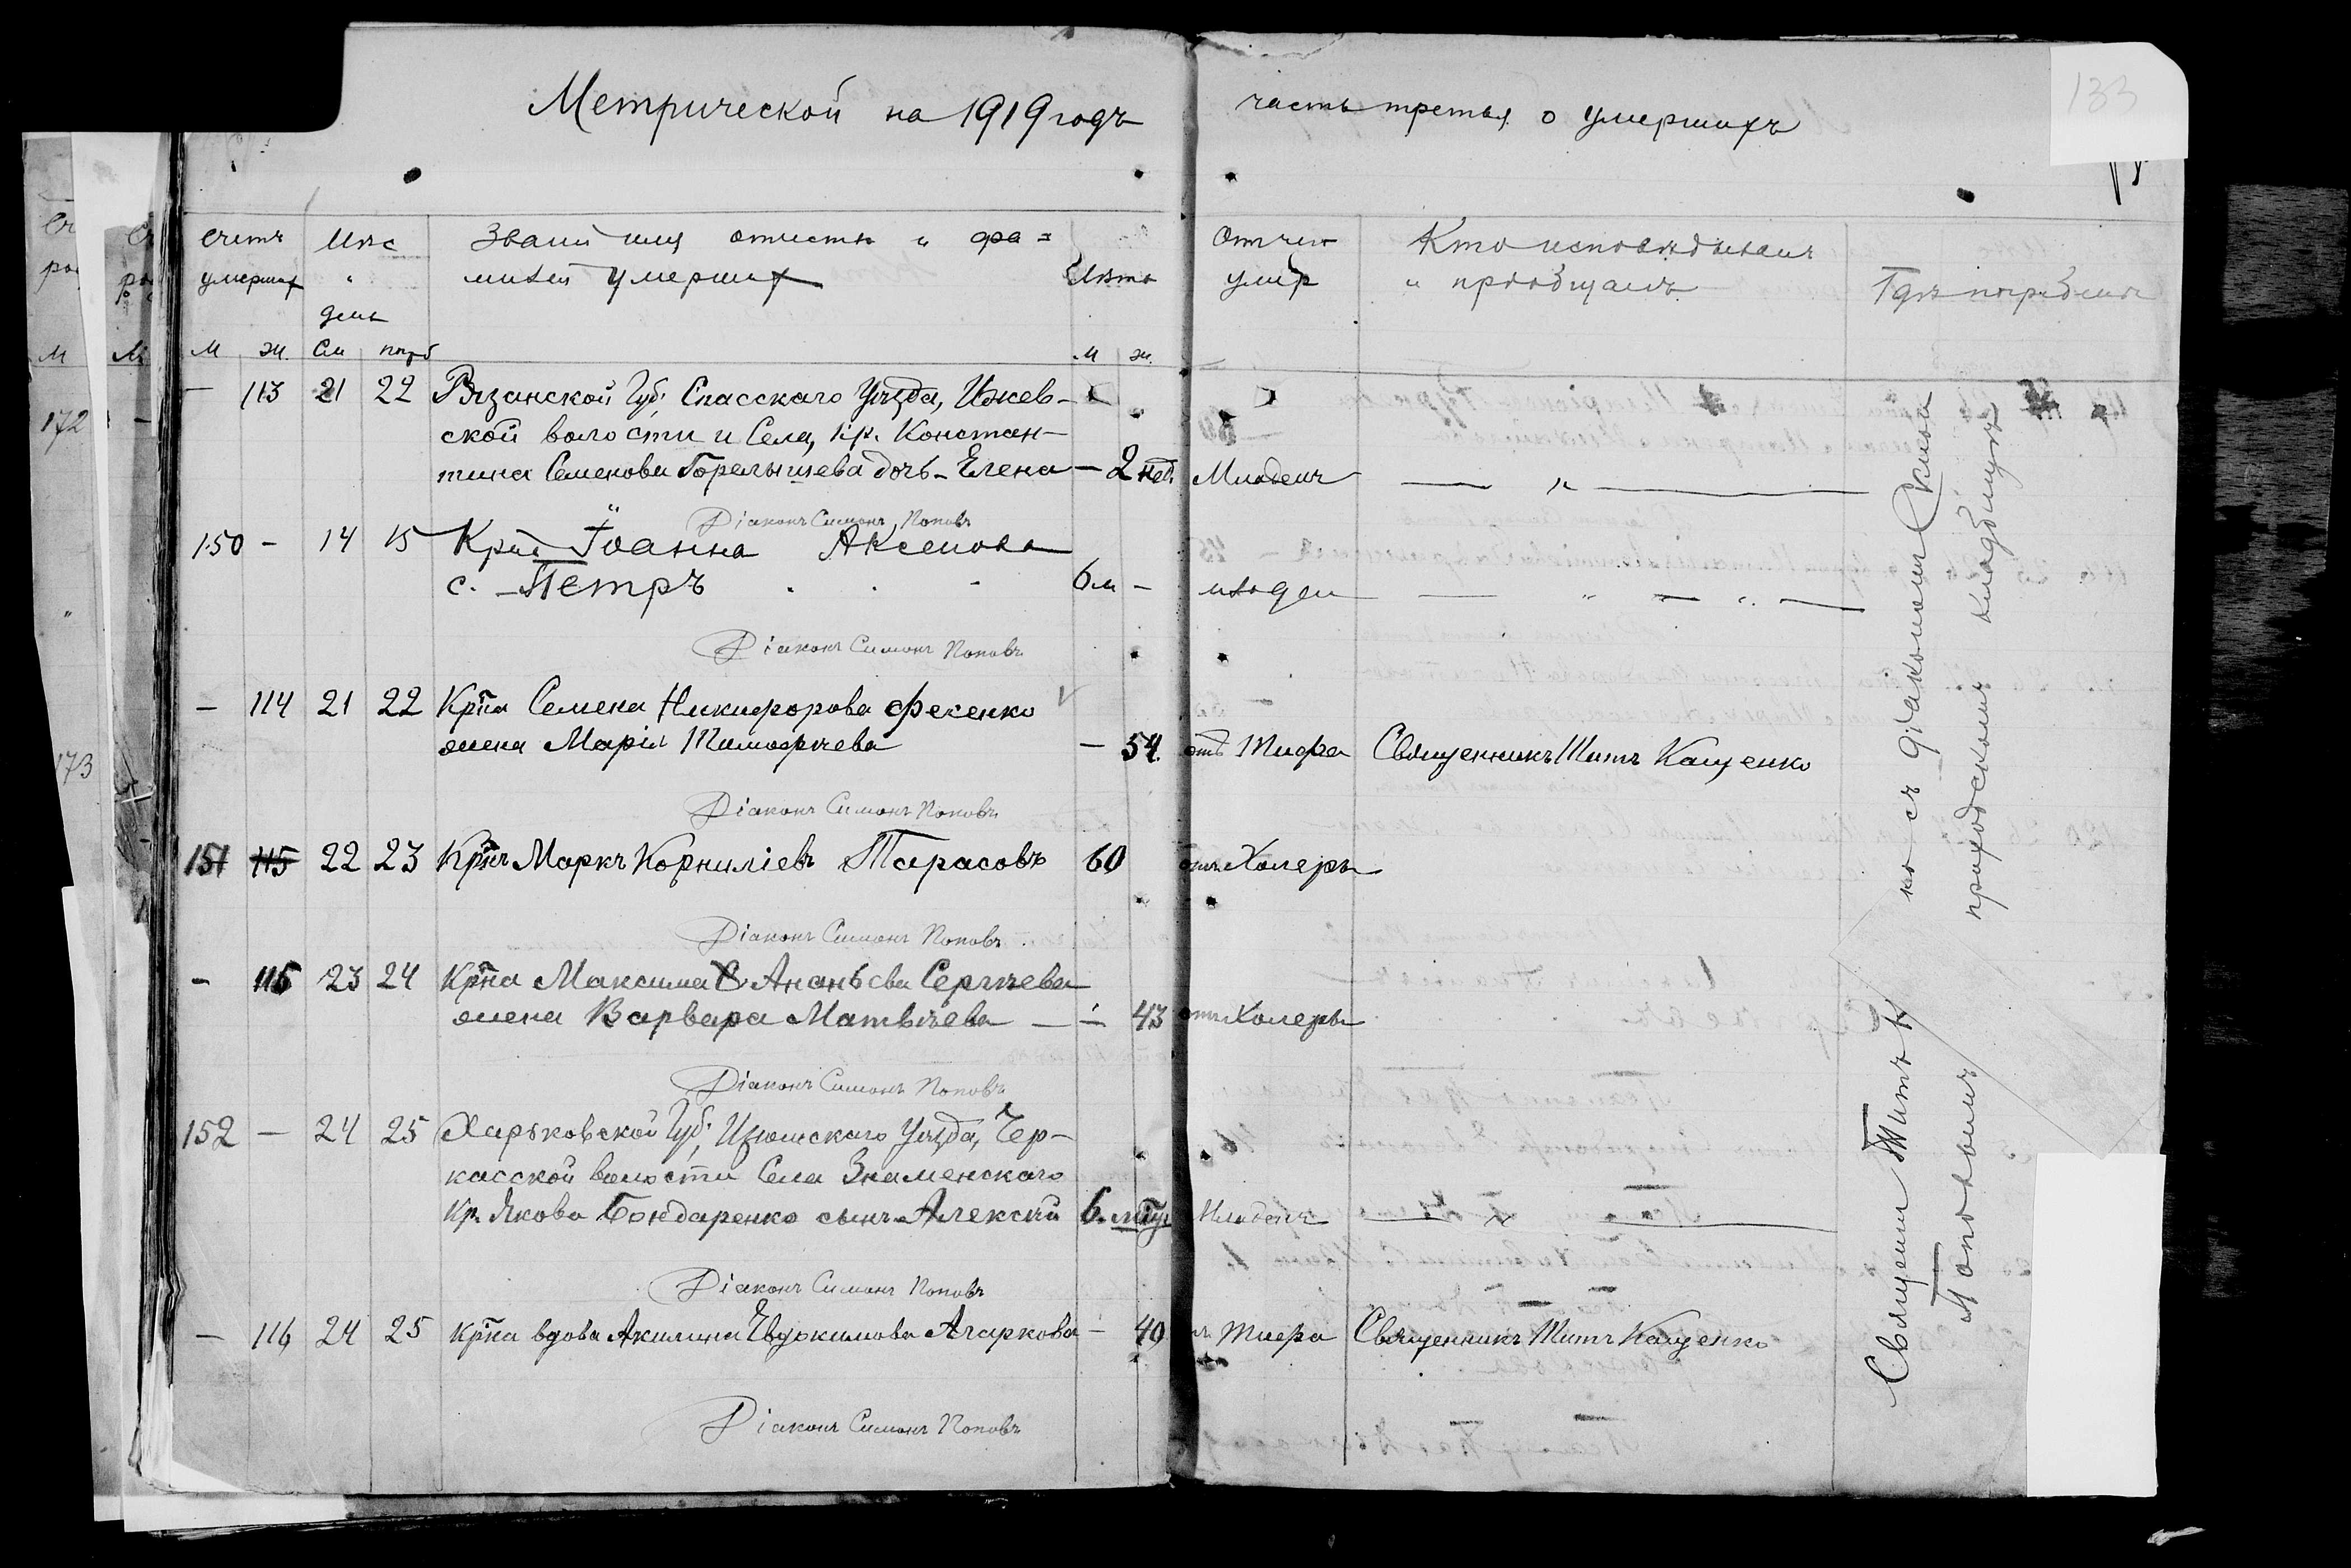 Метрической на 1919 годъ
часть третья о умершихъ
133
Счетъ умерших
М ж.
Мѣс и день
См погр
Звание имя отчество и фа=
милия умерших
Лѣта
м ж.
Отчего умер
Кто исповѣдывалъ
и приобщалъ
Гдѣ погребенъ
172
173
— 113 21 22 Рязанской Губ. Спасскаго Уѣзда, Ижев-
ской волости и Села, кр. Констан-
тина Семенова дочь - Елена — 2 нед. Младенч — „ —
Діаконъ Симонъ Поповъ
150 — 14 15 Крн Іоанна Аксенова
с. — Петръ 6 м — младен — „ — „ —
Діаконъ Симонъ Поповъ
— 114 21 22 Крна Семена Никифорова Фесенко
жена Марія Тимофѣева — 54. отъ Тифа Священникъ Титъ Кащенко
Діаконъ Симонъ Поповъ
151 115 22 23 Крнъ Маркъ Корниліевъ Тарасовъ 60 отъ Холеры
Діаконъ Симонъ Поповъ
— 115 23 24 Крна Максима Ананьева Сергѣева
жена Варвара Матвѣева — — 43 отъ Холеры
Діаконъ Симонъ Поповъ
152 — 24 25 Харьковской Губ. Изюмскаго Уѣзда, Чер-
касской волости Села Знаменскаго
Кр. Якова Бондаренко сынъ Алексѣй 6. мѣс Младенч — „ —
Діаконъ Симонъ Поповъ
— 116 24 25 Крна вдова Акилина Евдокимова Агаркова — 40 Тифа Священникъ Титъ Кащенко
Діаконъ Симонъ Поповъ
Священ Титъ К
ко съ діакономъ Симон
Поповымъ приходскомъ кладбищѣ